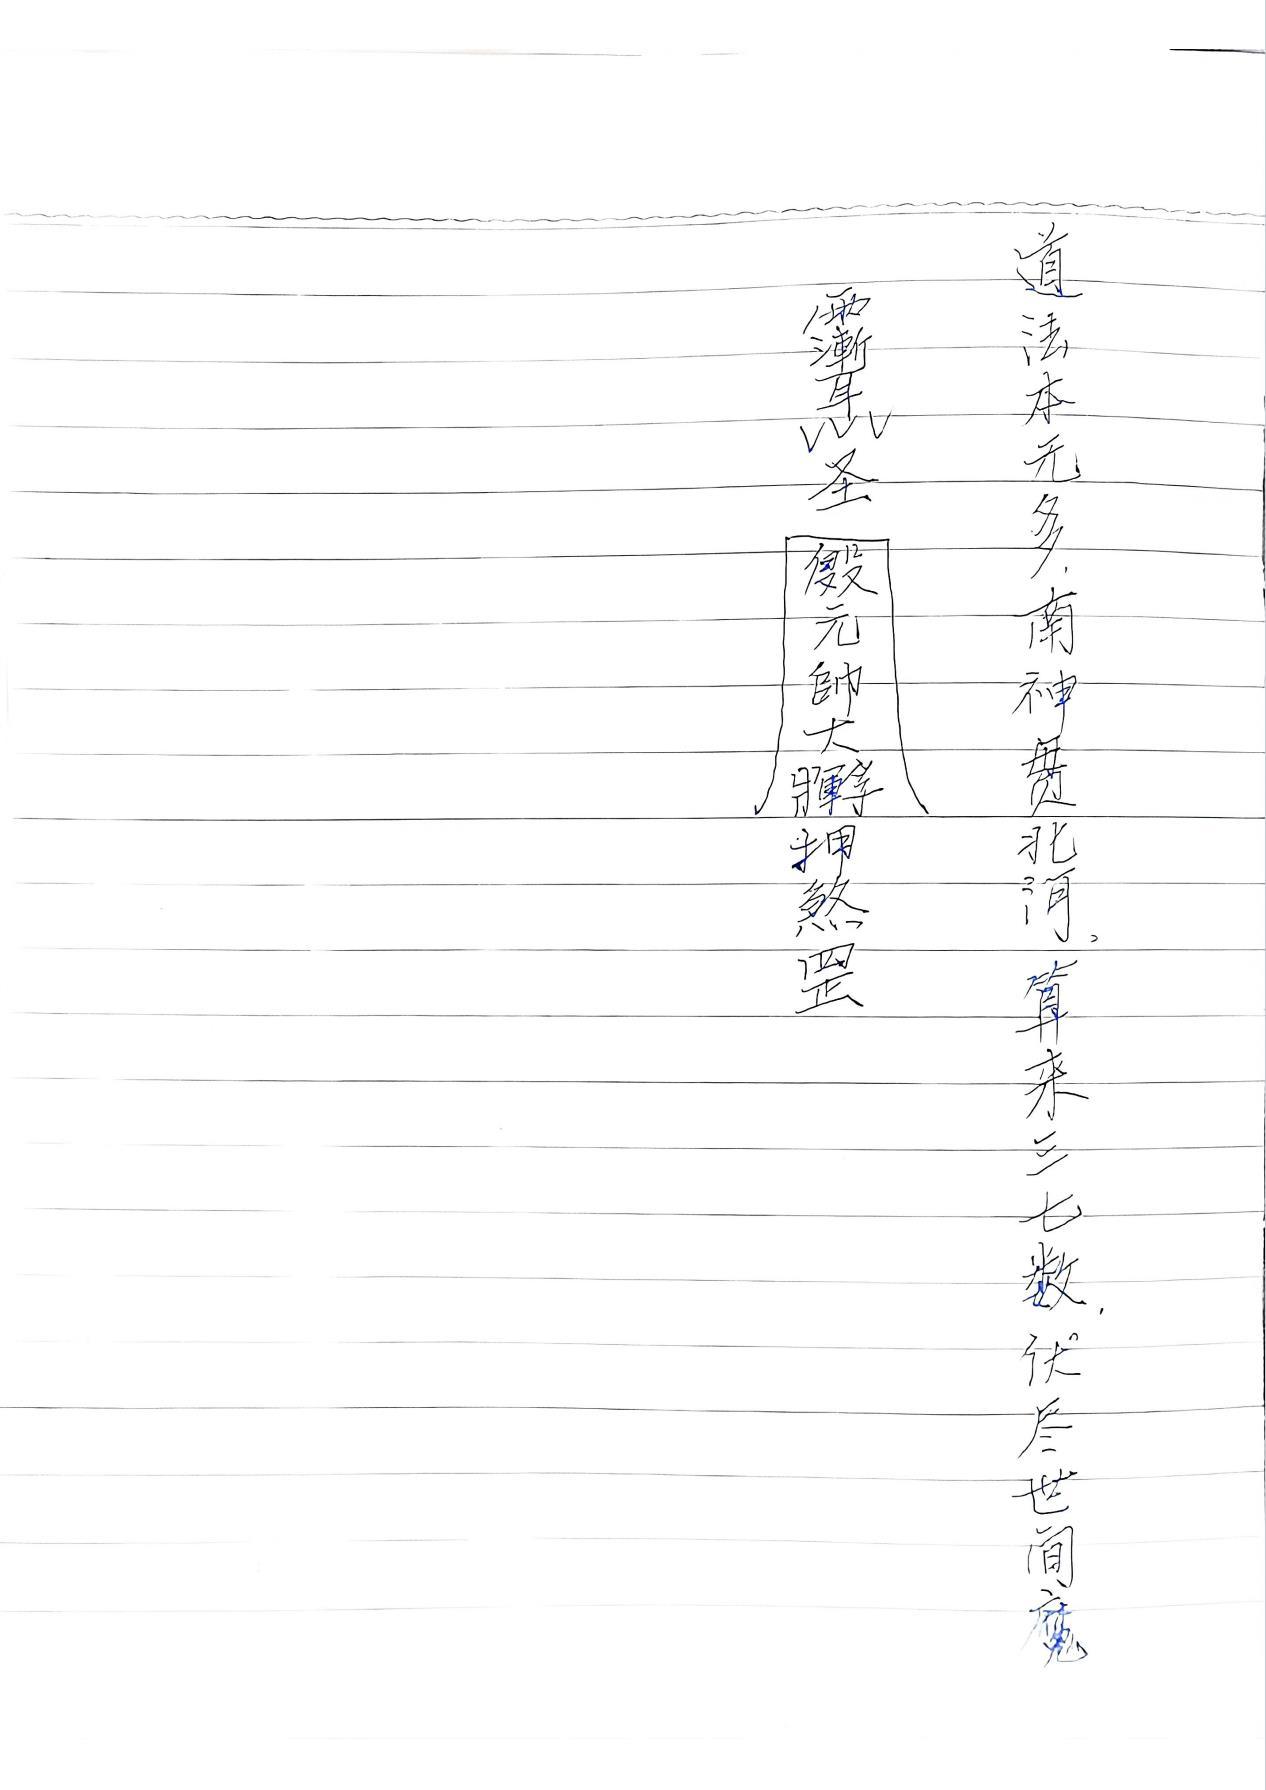 道法本元多，南神贯北河，算来三七数，伏尽世间魔
圣 元帥大 押煞罡